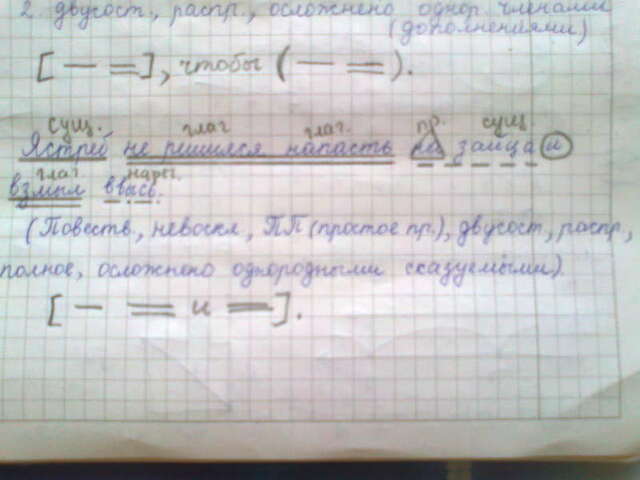 2. двусост., распр., осложнено однор. членами
(дополнениями)
[ — = ], чтобы ( — = ).
сущ. глаг глаг. пр. сущ.
Ястреб не решился напасть на зайца и
глаг. нареч.
взмыл ввысь.
(Повеств., невоскл., ПП (простое пр.), двусост., распр.,
полное, осложнено однородными сказуемыми).
[ — = и = ].